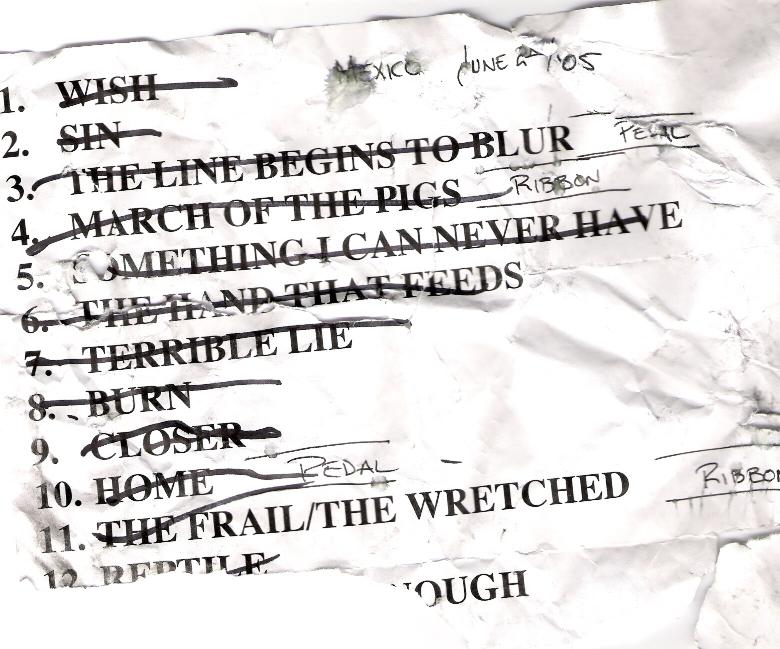 MEXICO JUNE 2ND/'05
1. WISH
2. SIN
3. THE LINE BEGINS TO BLUR PEDAL
4. MARCH OF THE PIGS RIBBON
5. SOMETHING I CAN NEVER HAVE
6. THE HAND THAT FEEDS
7. TERRIBLE LIE
8. BURN
9. CLOSER
10. HOME PEDAL
11. THE FRAIL/THE WRETCHED RIBBON
12. REPTILE
NOUGH